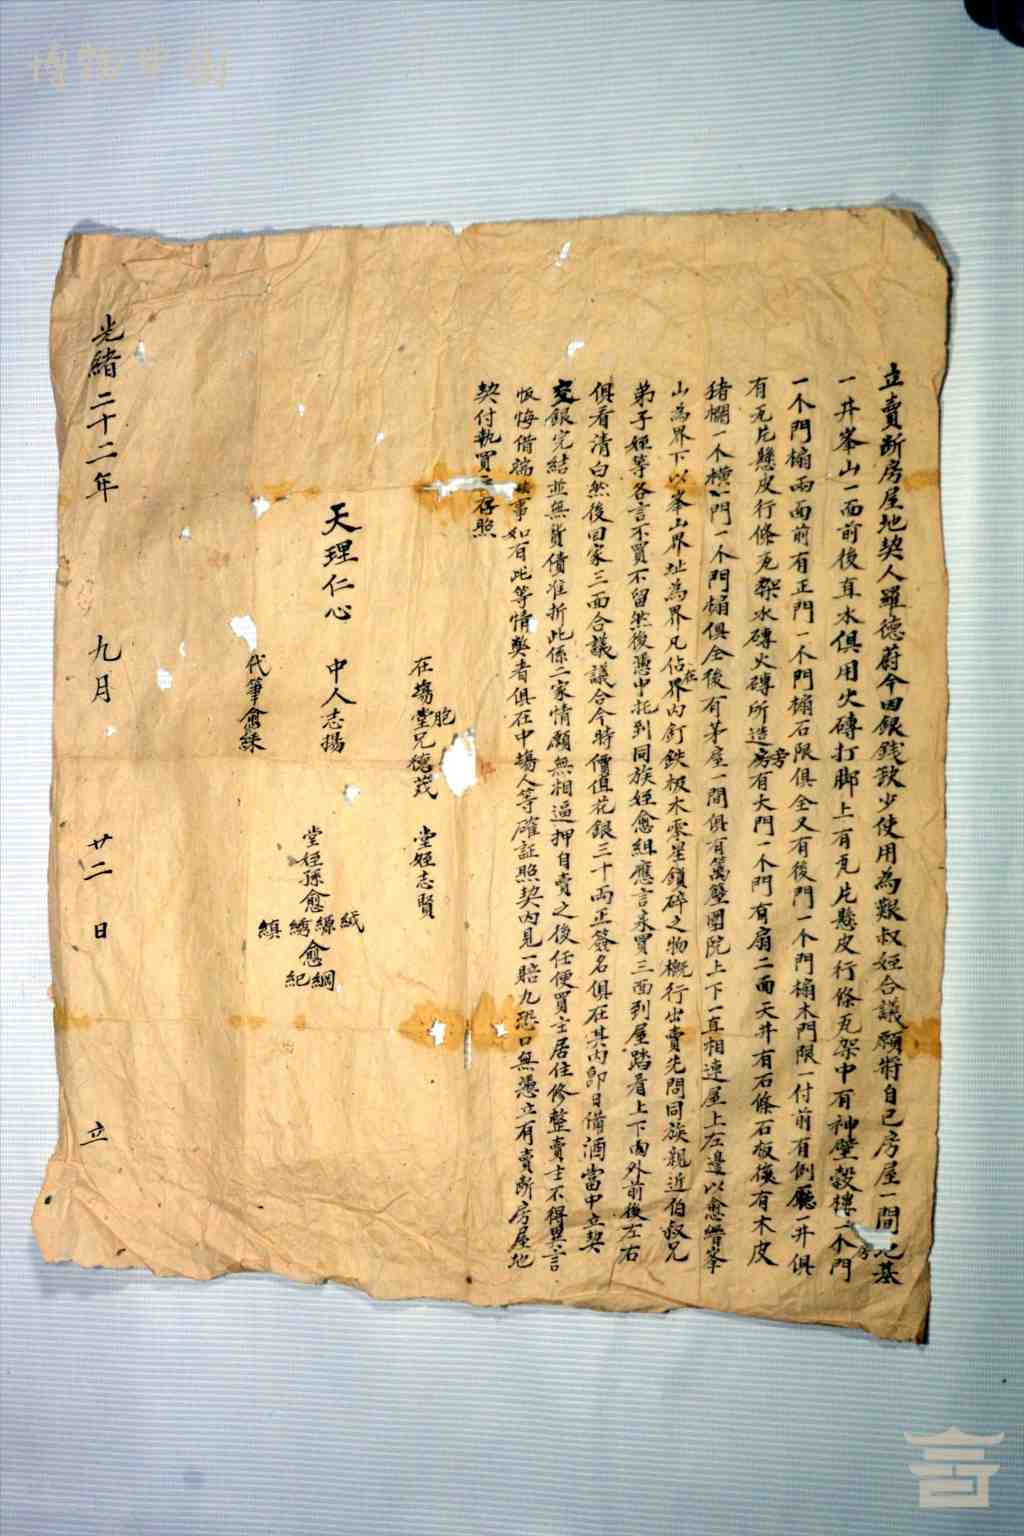 立賣斷房屋地契人羅德蔚今因銀錢缺少使用為艱叔姪合議願將自己房屋一間地基
一井峯山一面前後直水俱用火磚打脚上有瓦片懸皮行條瓦架中有神壁穀樓一个門
一个門榻兩面前有正門一个門榻石限俱全又有後門一个門榻木門限一付前有倒廳一井俱
有瓦片懸皮行條瓦架水磚火磚所造旁房有大門一个門有扇二面天井有石條石板俍有木皮
猪欄一个横門一个門榻俱全後有茅屋一間俱有籬壁圍院上下一直相連屋上左邊以愈峯
山為界下以峯山界址為界凡佔在界內釘鉄板木零星鎖碎之物概行出賣先問同族親近伯叔兄
弟子姪等各言不買不留然後憑中托到同族姪愈組應言承買三面到屋踏看上下內外前後左右
俱看清白然後回家三面合議議合今時價值花銀三十兩正簽名俱在其內即日備酒當中立契
交銀完結並無貨債准折此係二家情願無相逼押自賣之後任便買主居住修整賣主不得異言
恢悔借端事如有此等情獘者俱在中場人等確証照契內見一賠九恐口無憑立有賣斷房屋地
契付執買存照
在場胞堂兄德茂 堂姪志賢
天理仁心 中人志揚
堂姪孫愈絨縣縳縝 愈綱紀
代筆愈練
光緒二十二年 九月 廿二日 立
博物中国